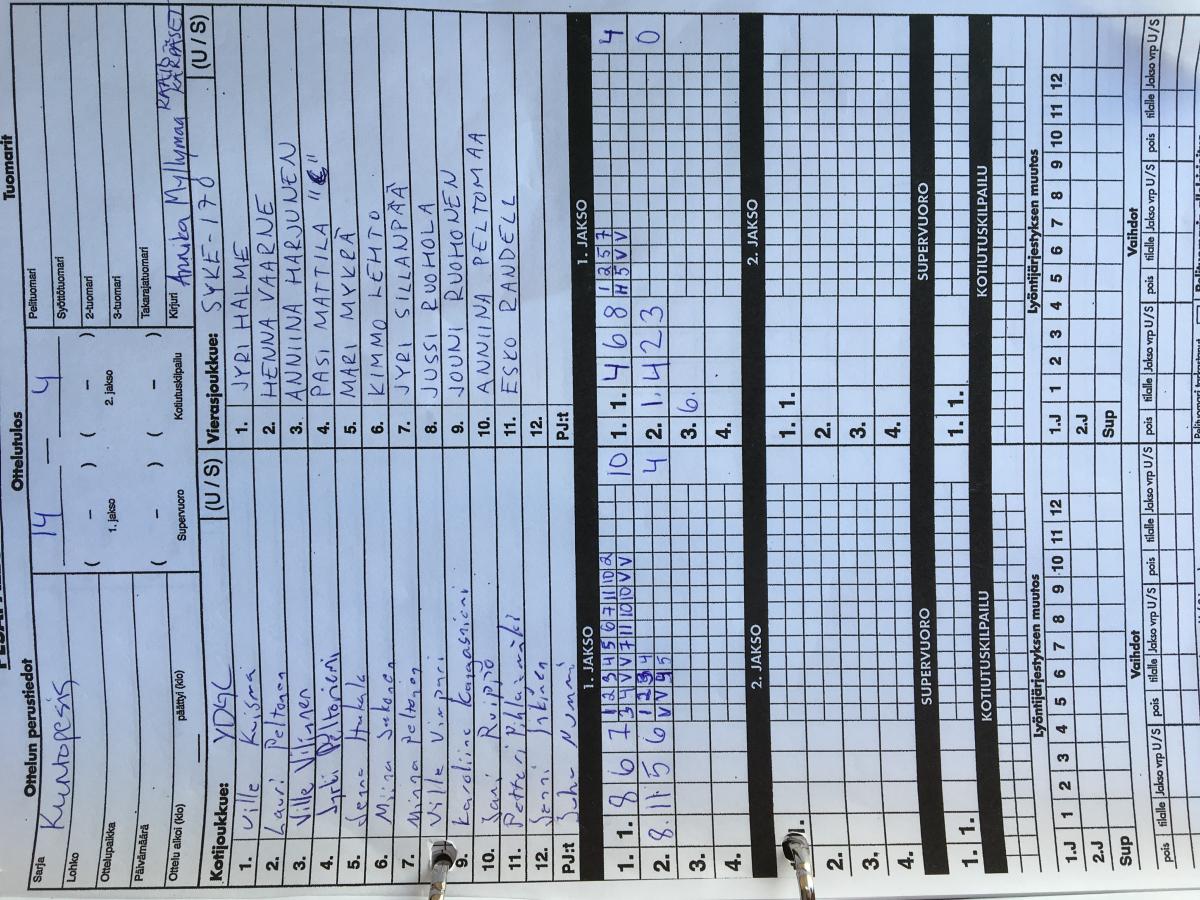 Ottelun perustiedot
Ottelutulos
Tuomarit
Sarja Kuntopesis
Lohko
Ottelupaikka
Päivämäärä
Ottelu alkoi (klo) päättyi (klo)
14 — 4
( – ) ( – )
1. jakso 2. jakso
( – ) ( – )
Supervuoro Kotiutuskilpailu
Pelituomari
Syöttötuomari
2-tuomari
3-tuomari
Takarajatuomari
Kirjuri Annika Myllymaa
KÄRPÄSET
Kotijoukkue: YDGC (U / S)
1. Ville Kuisma
2. Lauri Peltonen
3. Ville Vilknen
4. Jyrki
5. Jenna
6. Miina
7. Minna Peltonen
8. Ville Vimpari
9. Karoliine Kangasniemi
10. Jani Ruippo
11. Petteri Pihlajamäki
12. Jenni
PJ:t Juha Nummi
Vierasjoukkue: SYKE-178 (U / S)
1. JYRI HALME
2. HENNA VAARNE
3. ANNIINA HARJUNEN
4. PASI MATTILA "C"
5. MARI MYKRÄ
6. KIMMO LEHTO
7. JYRI SILLANPÄÄ
8. JUSSI RUOHOLA
9. JOUNI RUOHONEN
10. ANNIINA PELTOMAA
11. ESKO RANDELL
12.
PJ:t
1. JAKSO
1. 1. 8 6 7 1 2 3 4 5 6 7 11 10 2 10
3 4 V V 7 11 10 10 V V
2. 8. 11 5 6 1 2 3 4 4
V V 4 5
3.
4.
1. JAKSO
1. 1. 4 6 8 1 2 5 7 4
H 5 V V
2. 1. 4 2 3 0
3. 6.
4.
2. JAKSO
1. 1.
2.
3.
4.
2. JAKSO
1. 1.
2.
3.
4.
SUPERVUORO
1. 1.
SUPERVUORO
1. 1.
KOTIUTUSKILPAILU
KOTIUTUSKILPAILU
Lyöntijärjestyksen muutos
1.J 1 2 3 4 5 6 7 8 9 10 11 12
2.J
Sup
Lyöntijärjestyksen muutos
1.J 1 2 3 4 5 6 7 8 9 10 11 12
2.J
Sup
Vaihdot
pois tilalle Jakso vrp U/S pois tilalle Jakso vrp U/S pois tilalle Jakso vrp U/S
Vaihdot
pois tilalle Jakso vrp U/S pois tilalle Jakso vrp U/S pois tilalle Jakso vrp U/S